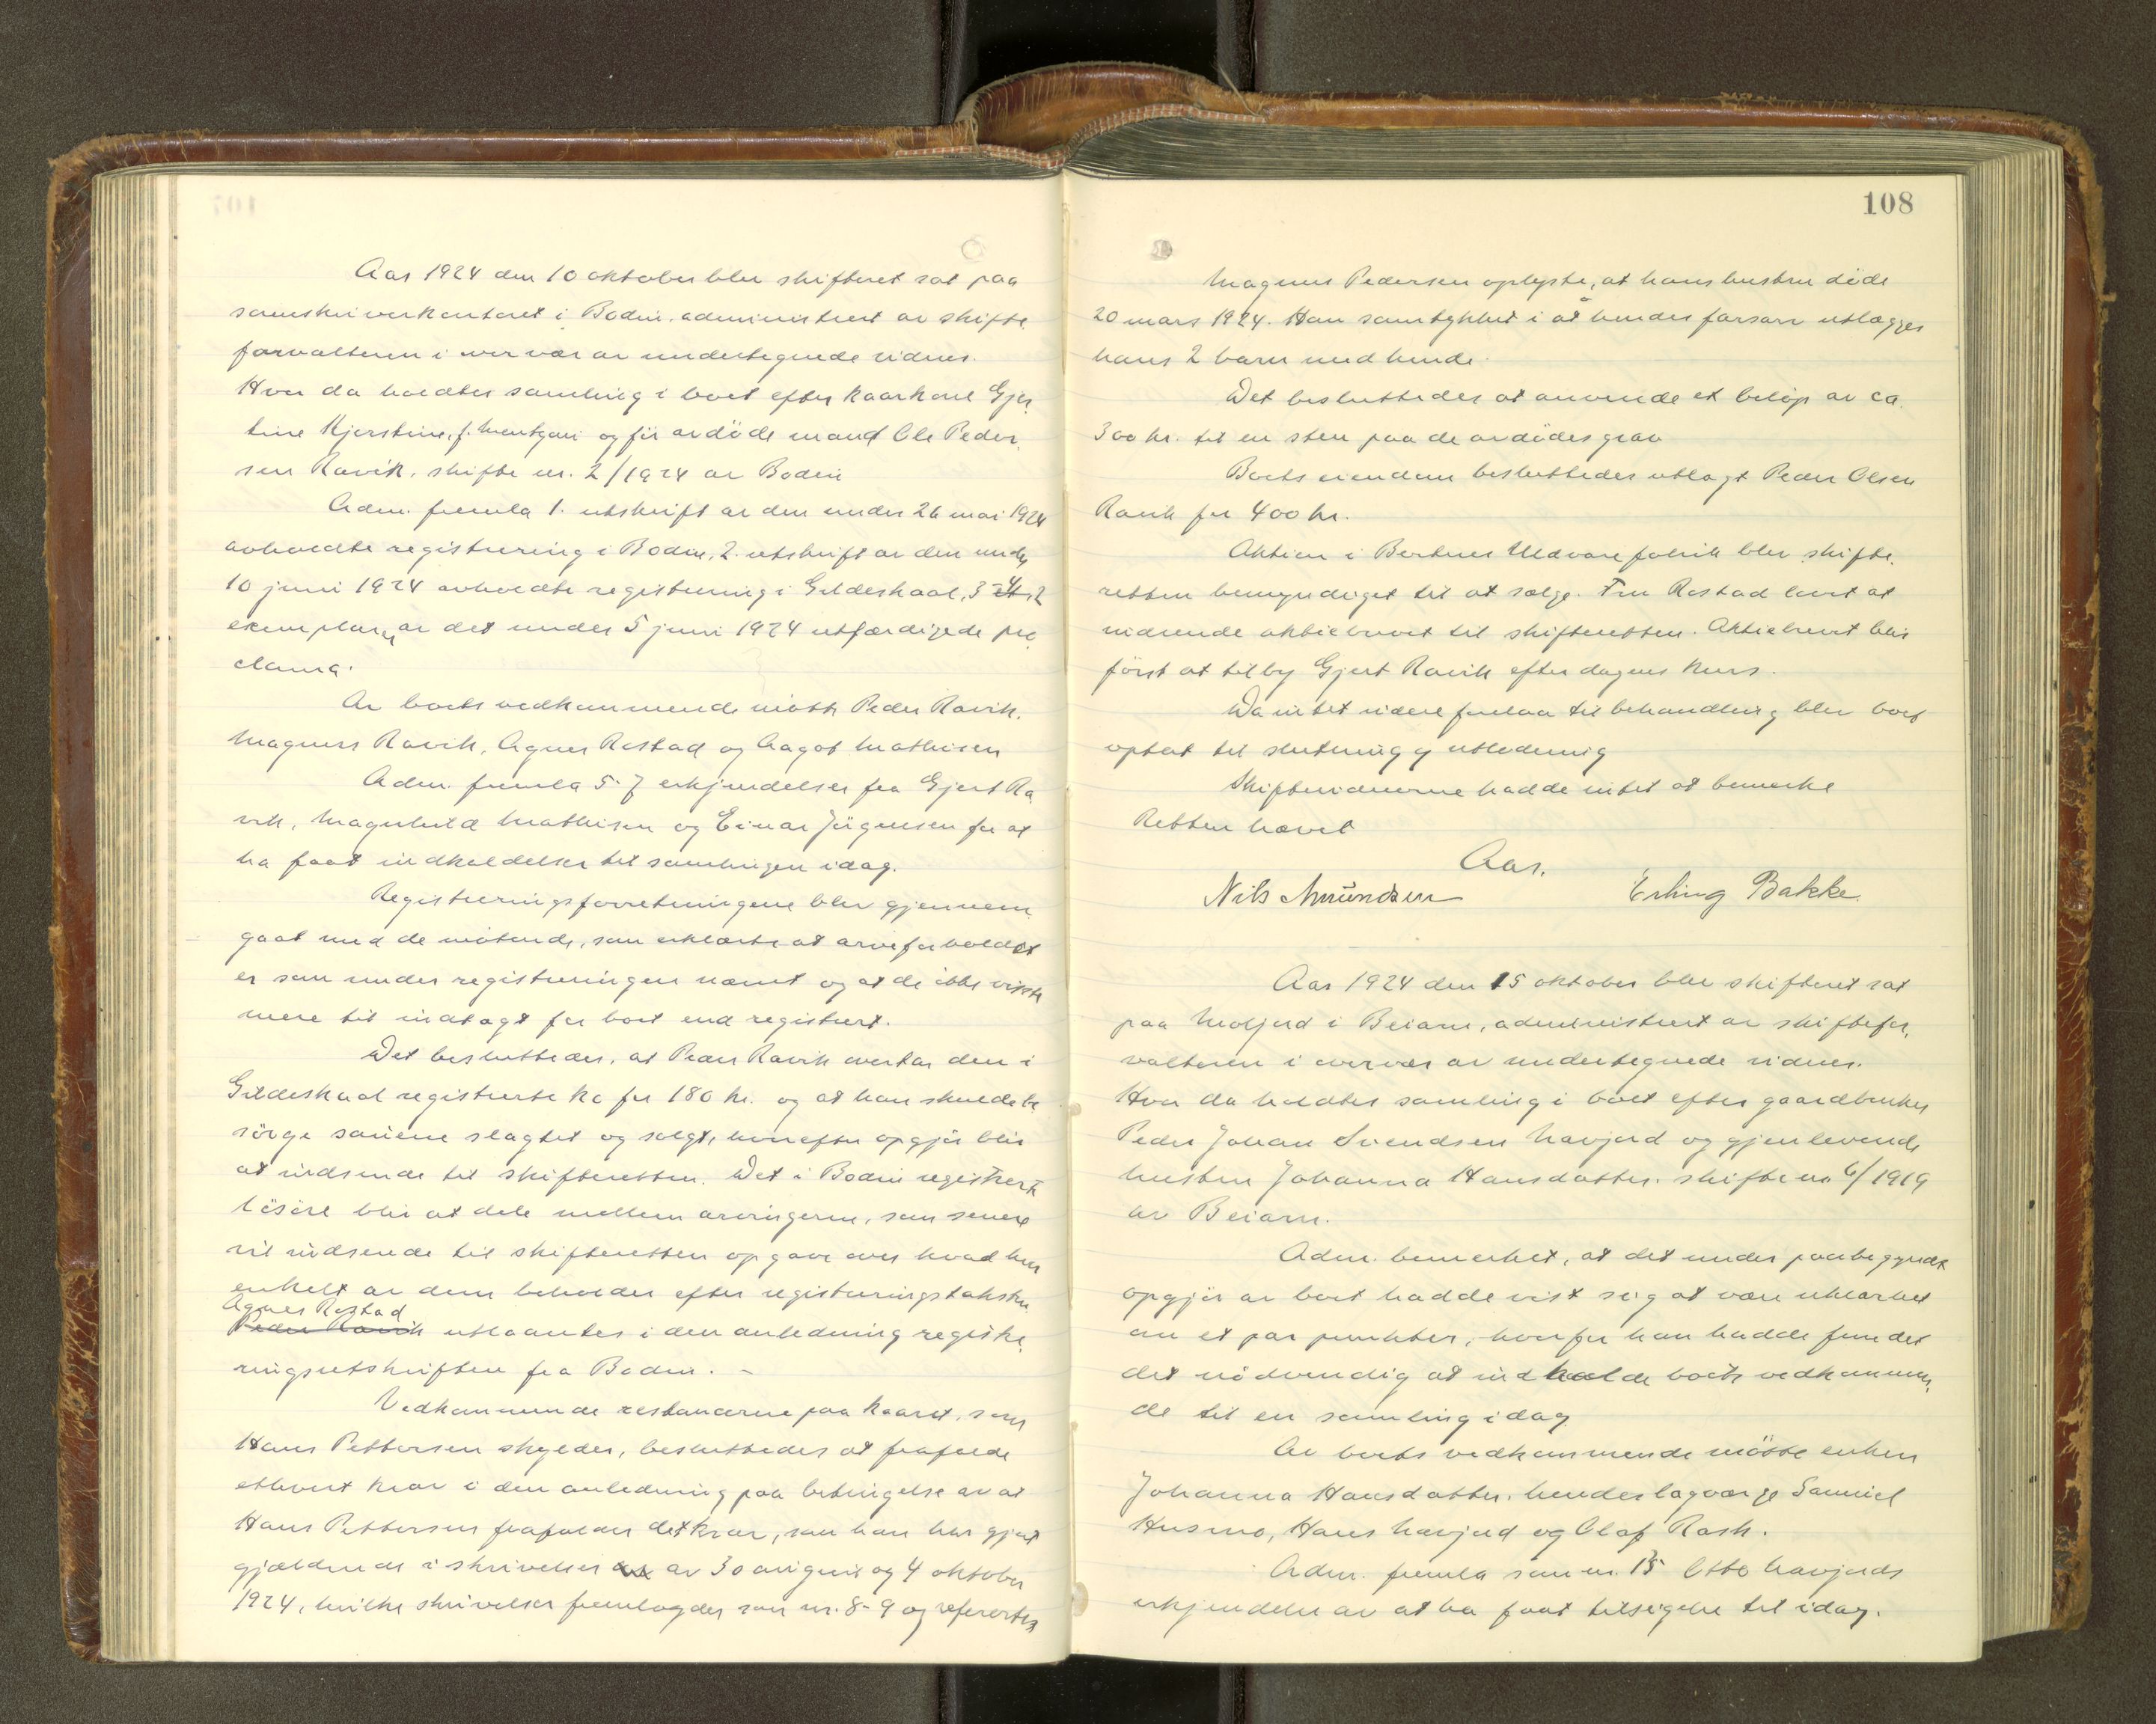 Aar 1924 den 10 oktober blev skifteret sat paa
sorenskriverkontoret i Bodin administrert av skifte
forvalteren i overvær av undertegnede vidner.
Hvor da holdtes samling i boet efter kaarkone Gjer
tine Kjerstine, f. Mentzoni og før avdøde mand Ole Peder
sen Ravik, skifte nr. 2/1924 av Bodin
Adm. fremla 1. utskrift av den under 26 mai 1924
avholdte registrering i Bodin, 2. utskrift av den under
10 juni 1924 avholdte registrering i Gildeskaal, 3-4 2
eksemplarer av det under 5 juni 1924 utfærdigede pro
clama.
Av boets vedkommende møtte Peder Ravik,
Magnus Ravik, Agnes Rostad og Aagot Mathisen
Adm. fremla 5-7 erkjendelser fra Gjert Ra
vik, Magnhild Mathisen og Einar Jørgensen for at
ha faat indkaldelser til samlingen idag.
Registreringsforretningene blev gjennem
gaat med de møtende, som erklærte at arveforholdet
er som under registreringen nævnt og at de ikke visste
mere til indtægt for boet end registrert.
Det besluttedes, at Peder Ravik overtar den i
Gildeskaal registrerte ko for 180 kr. og at han skulde la
sørge sauene slagtet og solgt, hvorefter opgjør blir
at indsende til skifteretten. Det i Bodin registrerte
løsøre blir at dele mellem arvingerne, som senere
vil indsende til skifteretten opgave over hvad hver
enkelt av dem beholder efter registreringstaksten
Agnes Rostad
Peder Ravik utlaantes i den anledning registre
ringsutskriften fra Bodin. -
Vedkommende restancerne paa kaaret, som
Hans Pettersen skylder, besluttedes at frafalde
ethvert krav i den anledning paa betingelse av at
Hans Pettersen frafalder det krav, som han har gjort
gjældende i skrivelser av 30 august og 4 oktober
1924, hvilke skrivelser fremlagdes som nr. 8-9 og refertes
108
Magnus Pedersen oplyste, at hans hustru døde
20 mars 1924. Han samtykket i at hendes farsarv utlægges
hans 2 barn med hende.
Det besluttedes at anvende et beløp av ca.
300 kr. til en sten paa de avdødes grav
Boets eiendom besluttedes utlagt Peder Olsen
Ravik for 400 kr.
Aktien i Bertnes Uldvarefabrik blev skifte
retten bemyndiget til at sælge. Fru Rostad lovet at
indsende aktiebrevet til skifteretten. Aktiebrevet blir
først at tilby Gjert Ravik efter dagens kurs.
Da intet videre forelaa til behandling blev boet
optat til slutning og utlodning
Skiftevidnerne hadde intet at bemerke
Retten hævet
Aas.
Nils Amundsen Erling Bakke
Aar 1924 den 15 oktober blev skifteret sat
paa Moljord i Beiarn, administrert av skiftefor
valteren i overvær av undertegnede vidner.
Hvor da holdtes samling i boet efter gaardbruker
Peder Johan Svendsen Navjord og gjenlevende
hustru Johanna Hansdatter. skifte nr. 6/1919
av Beiarn.
Adm. bemerket, at det under paabegyndt
opgjør av boet hadde vist sig at være uklarhet
om et par punkter, hvorfor han hadde fundet
det nødvendig at indkalde boets vedkommen
de til en samling idag.
Av boets vedkommende møtte enken
Johanna Hansdatter, hendes lagværge Samuel
Husmo, Hans Navjord og Olaf Rask.
Adm. fremla som nr. 15 Otto Navjords
erkjendelse av at ha faat tilsigelse til idag.